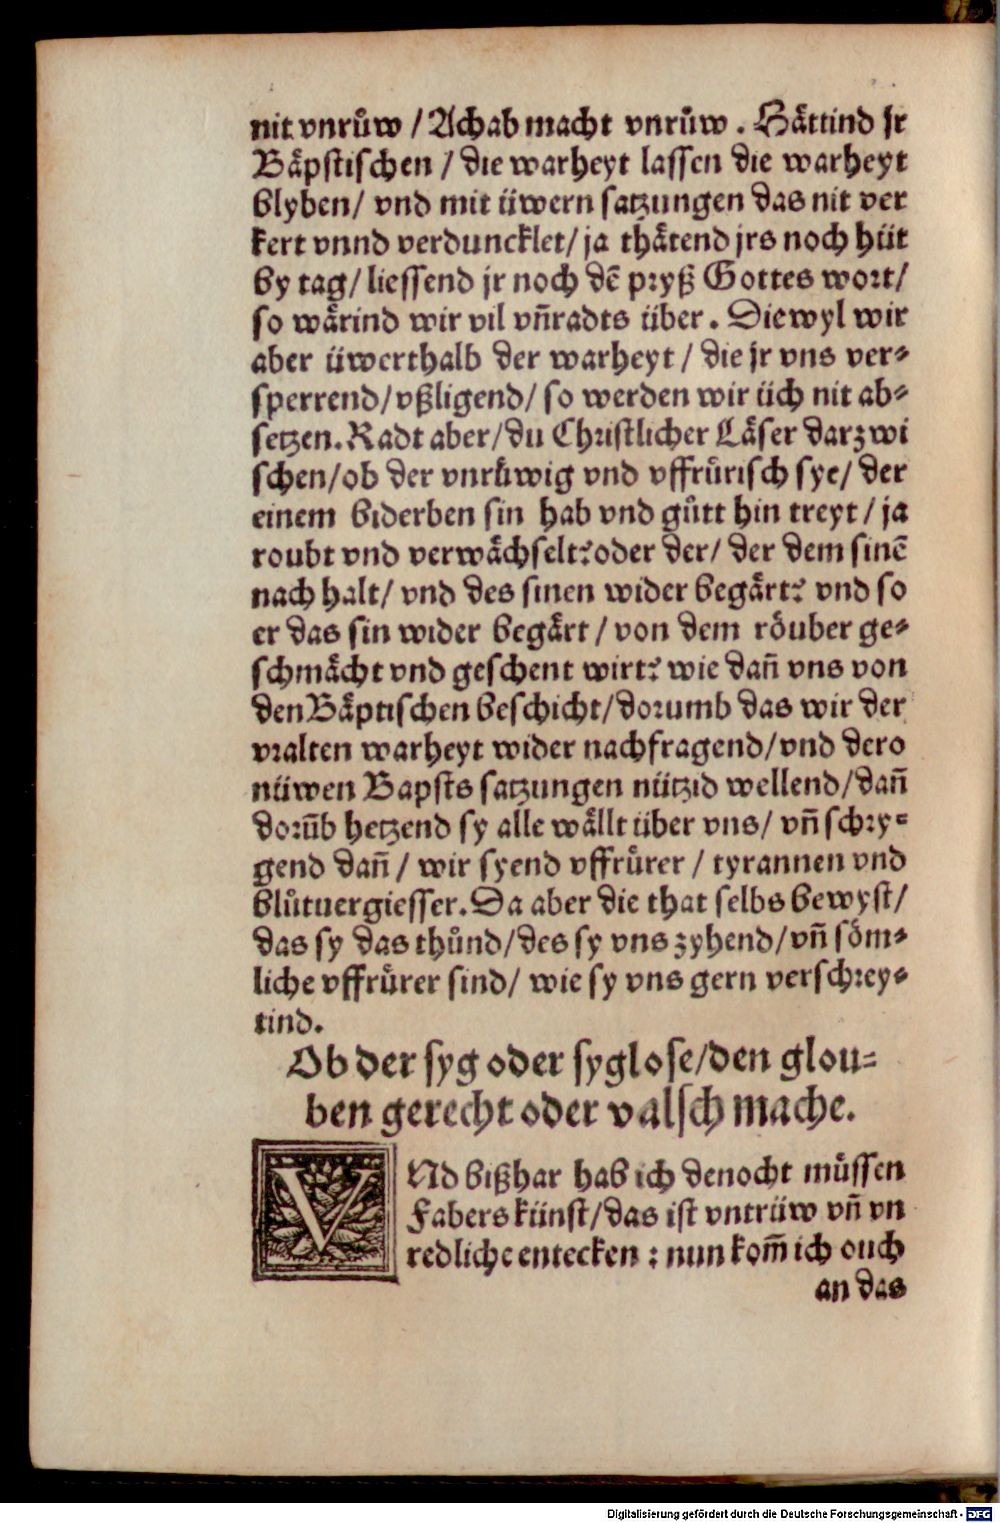 nit vnruͦw / Achab macht vnruͦw . Haͤttind jr
Baͤpstischen / die warheyt lassen die warheyt
blyben/ vnd mit üwern satzungen das nit ver
kert vnnd verduncklet/ ja thaͤtend jrs noch hüt
by tag/ liessend jr noch dē pryß Gottes wort/
so waͤrind wir vil vñradts über. Diewyl wir
aber üwerthalb der warheyt / die jr vns ver⸗
sperrend/vßligend/ so werden wir üch nit ab⸗
setzen. Radt aber/du Christlicher Laͤser darzwi
schen/ob der vnruͤwig vnd vffruͤrisch sye/ der
einem biderben sin hab vnd guͦtt hin treyt / ja
roubt vnd verwaͤchselt? oder der/ der dem sinē
nach halt/ vnd des sinen wider begaͤrt? vnd so
er das sin wider begaͤrt / von dem roͤuber ge⸗
schmaͤcht vnd geschent wirt? wie dañ vns von
den Baͤptischen beschicht/dorumb das wir der
vralten warheyt wider nachfragend/vnd dero
nüwen Bapsts satzungen nützid wellend/dañ
dorūb hetzend sy alle waͤllt über vns/ vñ schry⸗
gend dañ / wir syend vffruͤrer / tyrannen vnd
bluͦtuergiesser. Da aber die that selbs bewyst/
das sy das thuͦnd/des sy vns zyhend/vñ soͤm⸗
liche vffruͤrer sind/ wie sy vns gern verschrey⸗
tind.
Ob der syg oder syglose/den glou⸗
ben gerecht oder valsch mache.
VNd bißhar hab ich denocht muͤssen
Fabers künst/das ist vntrüw vñ vn
redliche entecken : nun kom̄ ich ouch
an das
Digitalisierung gefördert durch die Deutsche Forschungsgemeinschaft - DFG